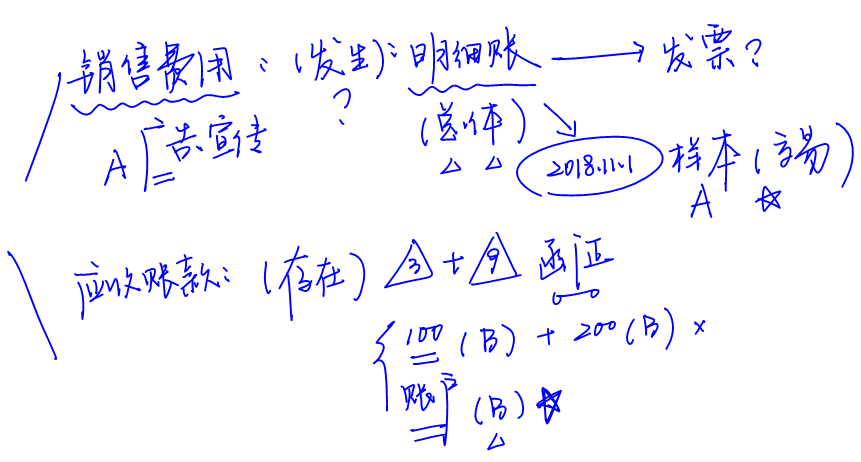 销售费用：(发生)：明细账 → 发票？
A 广告宣传 ? (总体) 2018.11.1 样本 (交易)
△ △ A ☆
应收账款：(存在) 3 + 9 函证
100 (B) + 200 (B) ×
账户 (B) ☆
△